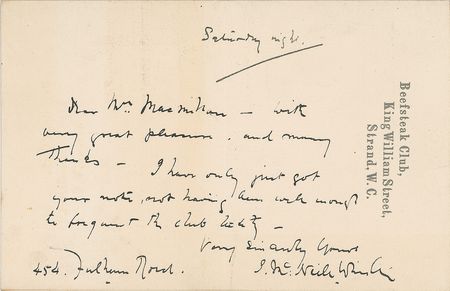 Saturday night.
Beefsteak Club,
King William Street,
Strand, W.C.
Dear Mrs Macmillan — with
very great pleasure. and many
thanks — I have only just got
your note, not having been well enough
to frequent the club lately —
Very sincerely yours
J. McNeill Whistler
454. Fulham Road.